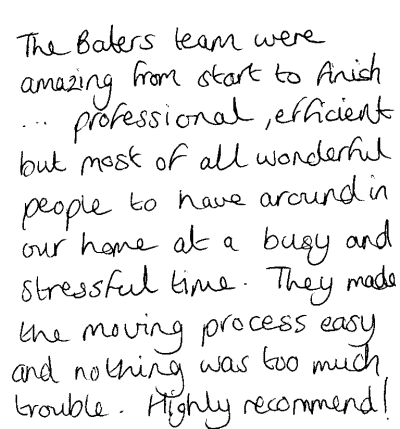 The Baters team were
amazing from start to finish
... professional, efficient
but most of all wonderful
people to have around in
our home at a busy and
stressful time. They made
the moving process easy
and nothing was too much
trouble. Highly recommend!